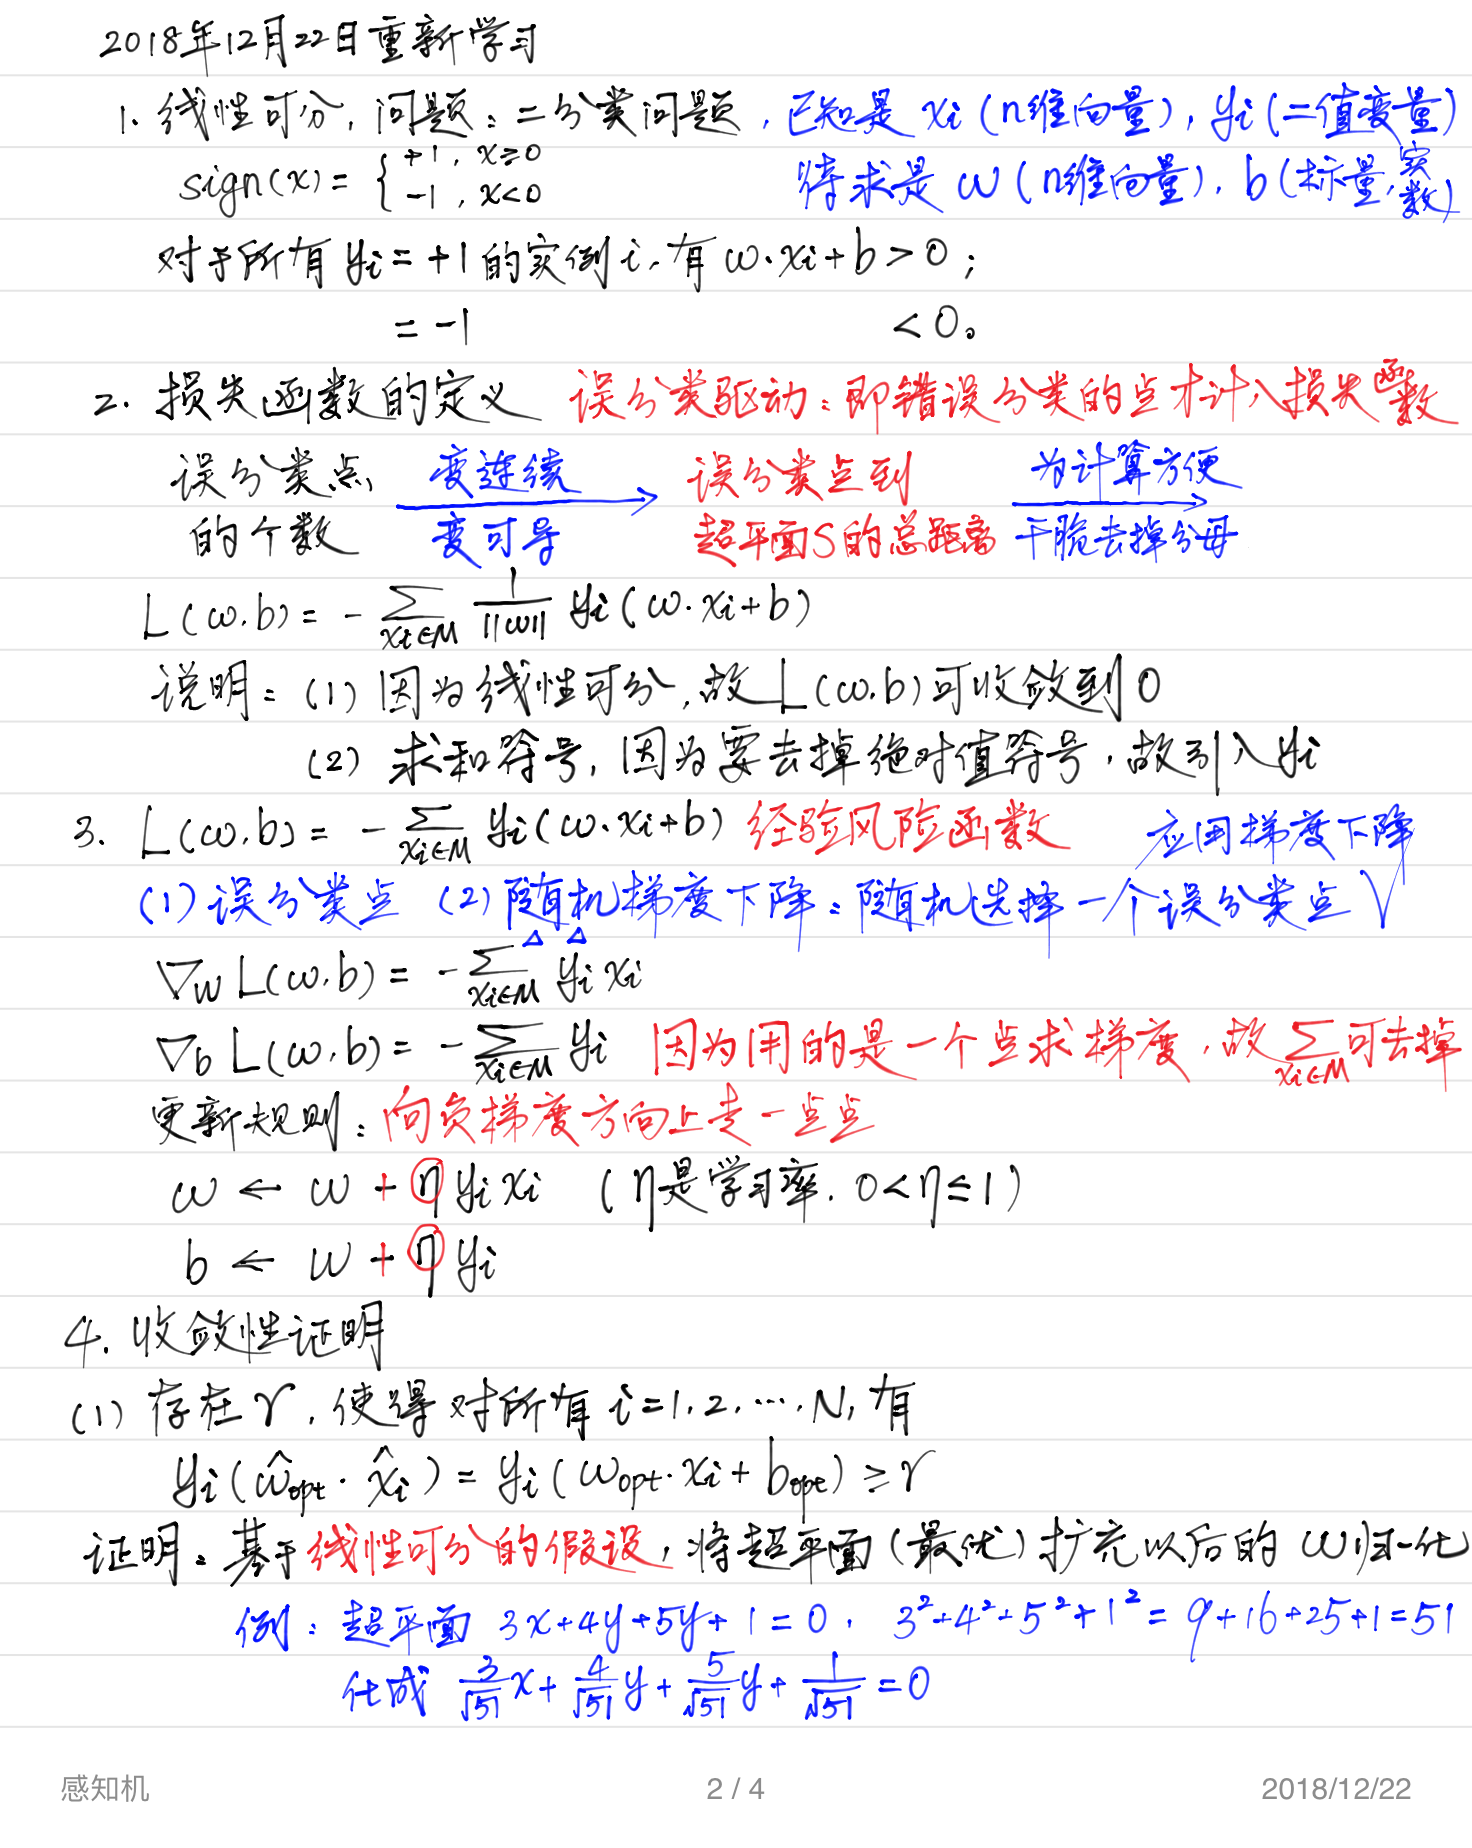 2018年12月22日重新学习
1. 线性可分，问题：二分类问题，已知是 xi (n维向量)，yi (二值变量)
sign(x) = { +1, x≥0
-1, x<0
待求是 w (n维向量)，b (标量，实数)
对于所有 yi = +1 的实例 i，有 w·xi + b > 0；
= -1 < 0。
2. 损失函数的定义 误分类驱动：即错误分类的点才计入损失函数
误分类点 变连续 误分类点到 为计算方便
的个数 变可导 超平面S的总距离 干脆去掉分母
L(w,b) = -∑xi∈M 1/||w|| yi (w·xi+b)
说明：(1) 因为线性可分，故 L(w,b) 可收敛到 0
(2) 求和符号，因为要去掉绝对值符号，故引入 yi
3. L(w,b) = -∑xi∈M yi (w·xi+b) 经验风险函数 应用梯度下降
(1) 误分类点 (2) 随机梯度下降：随机选择一个误分类点 √
∇w L(w,b) = -∑xi∈M yi xi
∇b L(w,b) = -∑xi∈M yi 因为用的是一个点求梯度，故 ∑xi∈M 可去掉
更新规则：向负梯度方向上走一点点
w ← w + η yi xi (η是学习率，0<η≤1)
b ← w + η yi
4. 收敛性证明
(1) 存在 γ，使得对所有 i=1,2,…,N，有
yi (ŵopt · x̂i) = yi (wopt · xi + bopt) ≥ γ
证明：基于线性可分的假设，将超平面(最优)扩充以后的 w 归一化
例：超平面 3x+4y+5y+1=0，3²+4²+5²+1²=9+16+25+1=51
化成 3/√51 x + 4/√51 y + 5/√51 y + 1/√51 = 0
感知机 2 / 4 2018/12/22